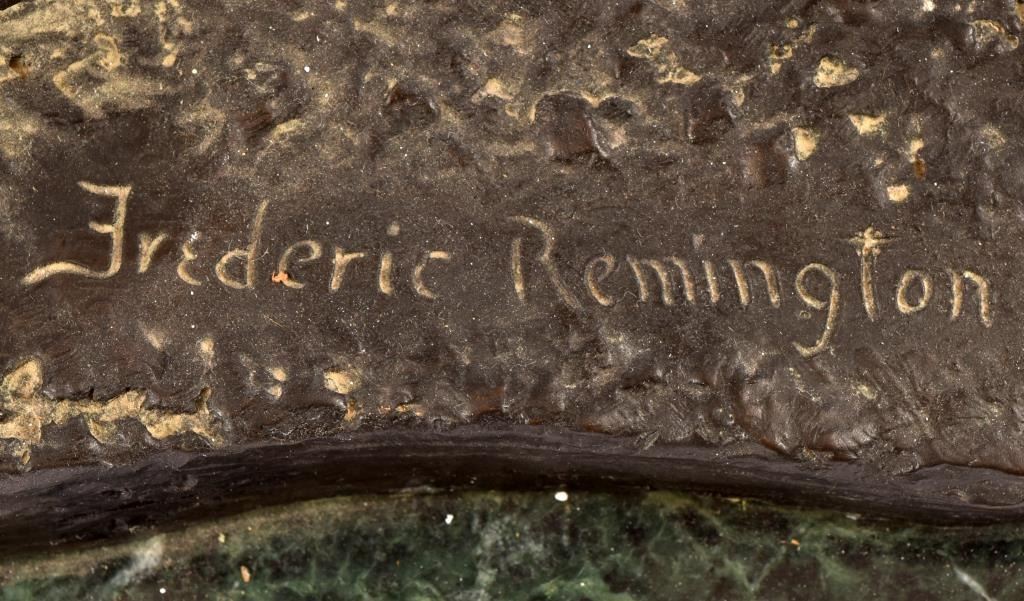 Frederic Remington